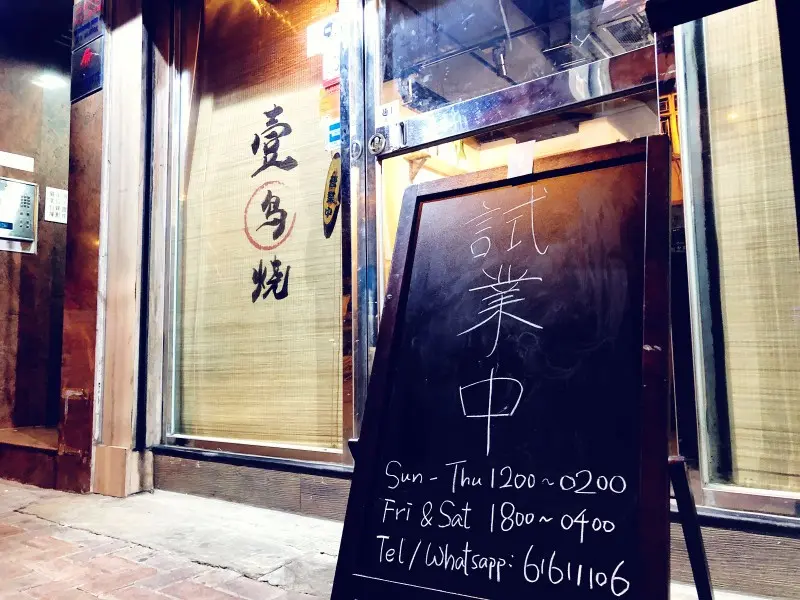 壹鸟燒
營業中
試業中
Sun - Thu 1200~0200
Fri & Sat 1800~0400
Tel/Whatsapp: 61611106